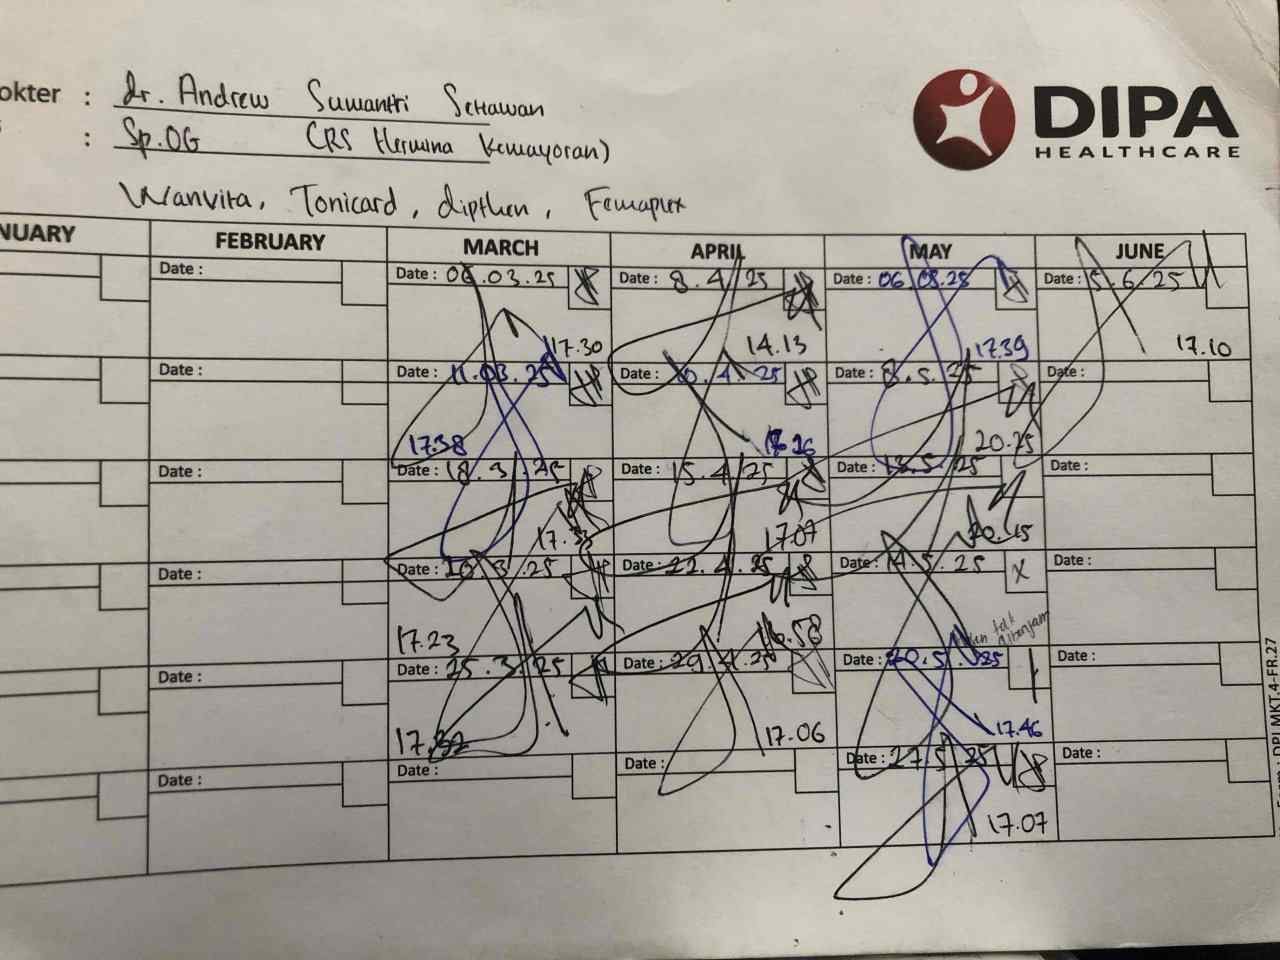 okter : dr. Andrew Suwantri Setiawan
: Sp.OG (RS Hermina Kemayoran)
DIPA
HEALTHCARE
Wanvita, Tonicard, dipthen, Femaplex
NUARY FEBRUARY MARCH APRIL MAY JUNE
Date : Date : 06.03.25 Date : 8.4.25 Date : 06.05.25 Date : 5.6.25
17.30 14.13 17.39 17.10
Date : Date : 11.03.25 Date : 10.4.25 Date : 8.5.25 Date :
17.38 20.25
Date : Date : 18.3.25 Date : 15.4.25 Date : 13.5.25 Date :
17.33 17.07 20.15
Date : Date : 20.3.25 Date : 22.4.25 Date : 14.5.25 X Date :
17.23 16.58
Date : Date : 25.3.25 Date : 29.4.25 Date : 20.5.25 Date :
17.32 17.06 17.46
Date : Date : Date : Date : 27.5.25 Date :
17.07
DPI.MKT.4-FR.27